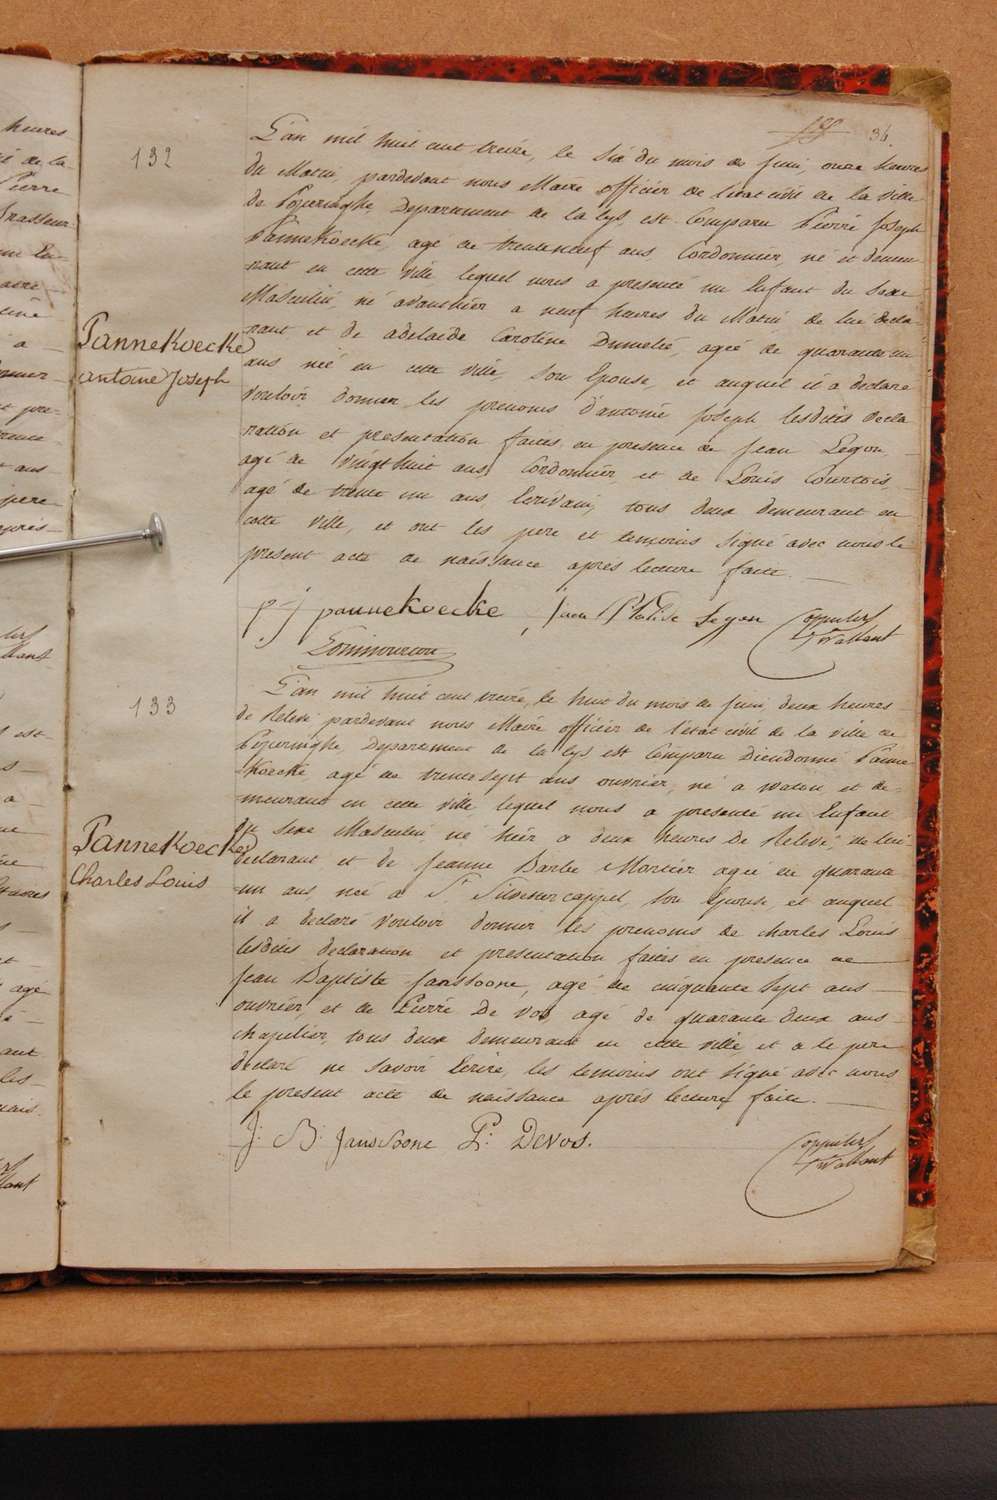 34.
132
L'an mil huit cent treize, le six du mois de juin, onze heures
du Matin, pardevant nous Maire officier de l'état civil de la ville
de Poperinghe, Departement de la lys, est Comparu Pierre Joseph
Pannekoecke, agé de trenteneuf ans, Cordonnier, né et demeu-
rant en cette ville, lequel nous a presenté un Enfant du Sexe
Masculin, né avanthier a neuf heures du Matin de lui décla-
rant et de adelaide Caroline Dumelié, agée de quarante un
ans née en cette ville, son Epouse, et auquel il a declaré
vouloir donner les prenoms d'antoine Joseph lesdites decla
ration et presentation faites en presence de Jean Legon,
agé de vingthuit ans, Cordonnier, et de Louis Courtois,
agé de trente un ans, Ecrivain, tous deux demeurant en
cette ville, et ont les pere et temoins signé avec nous le
present acte de naissance après lecture faite.
PanneKoecke
antoine Joseph
p. j pannekoecke Legon
133
L'an mil huit cent treize, le huit du mois de juin, deux heures
de Relevé pardevant nous Maire officier de l'état civil de la ville de
Poperinghe, Departement de la lys est Comparu Dieudonné Panne
Koecke, agé de trente sept ans ouvrier, né a watou et de-
meurant en cette ville lequel nous a presenté un Enfant
du Sexe Masculin né hier a deux heures de Relevé, de lui
declarant et de Jeanne Barbe Mortier agée de quarante
un ans, née a St. Silvestercappel, son Epouse, et auquel
il a declaré vouloir donner les prenoms de Charles Louis
lesdites declaration et presentation faites en presence de
Jean Baptiste Janssoone, agé de cinquante sept ans
ouvrier, et de Pierre De vos agé de quarante deux ans
chapelier, tous deux demeurant en cette ville et a le pere
declaré ne savoir Ecrire, les temoins ont signé avec nous
le present acte de naissance après lecture faite.
PanneKoecke
Charles Louis
J: B: Janssoone P: Devos.